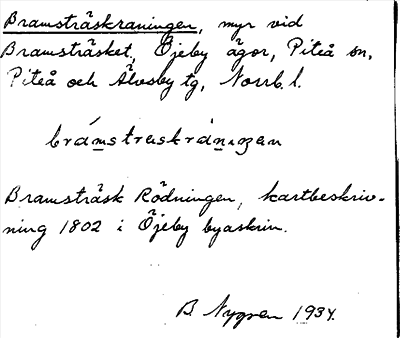 Bramsträskraningen, myr vid
Bramsträsket, Öjeby ägor, Piteå sn,
Piteå och Älvsby tg, Norrb. l.
bràmstruskrànıgan
Bramsträsk Rödningen, kartbeskriv-
ning 1802 i Öjeby byaskrin.
B. Nygren 1934.